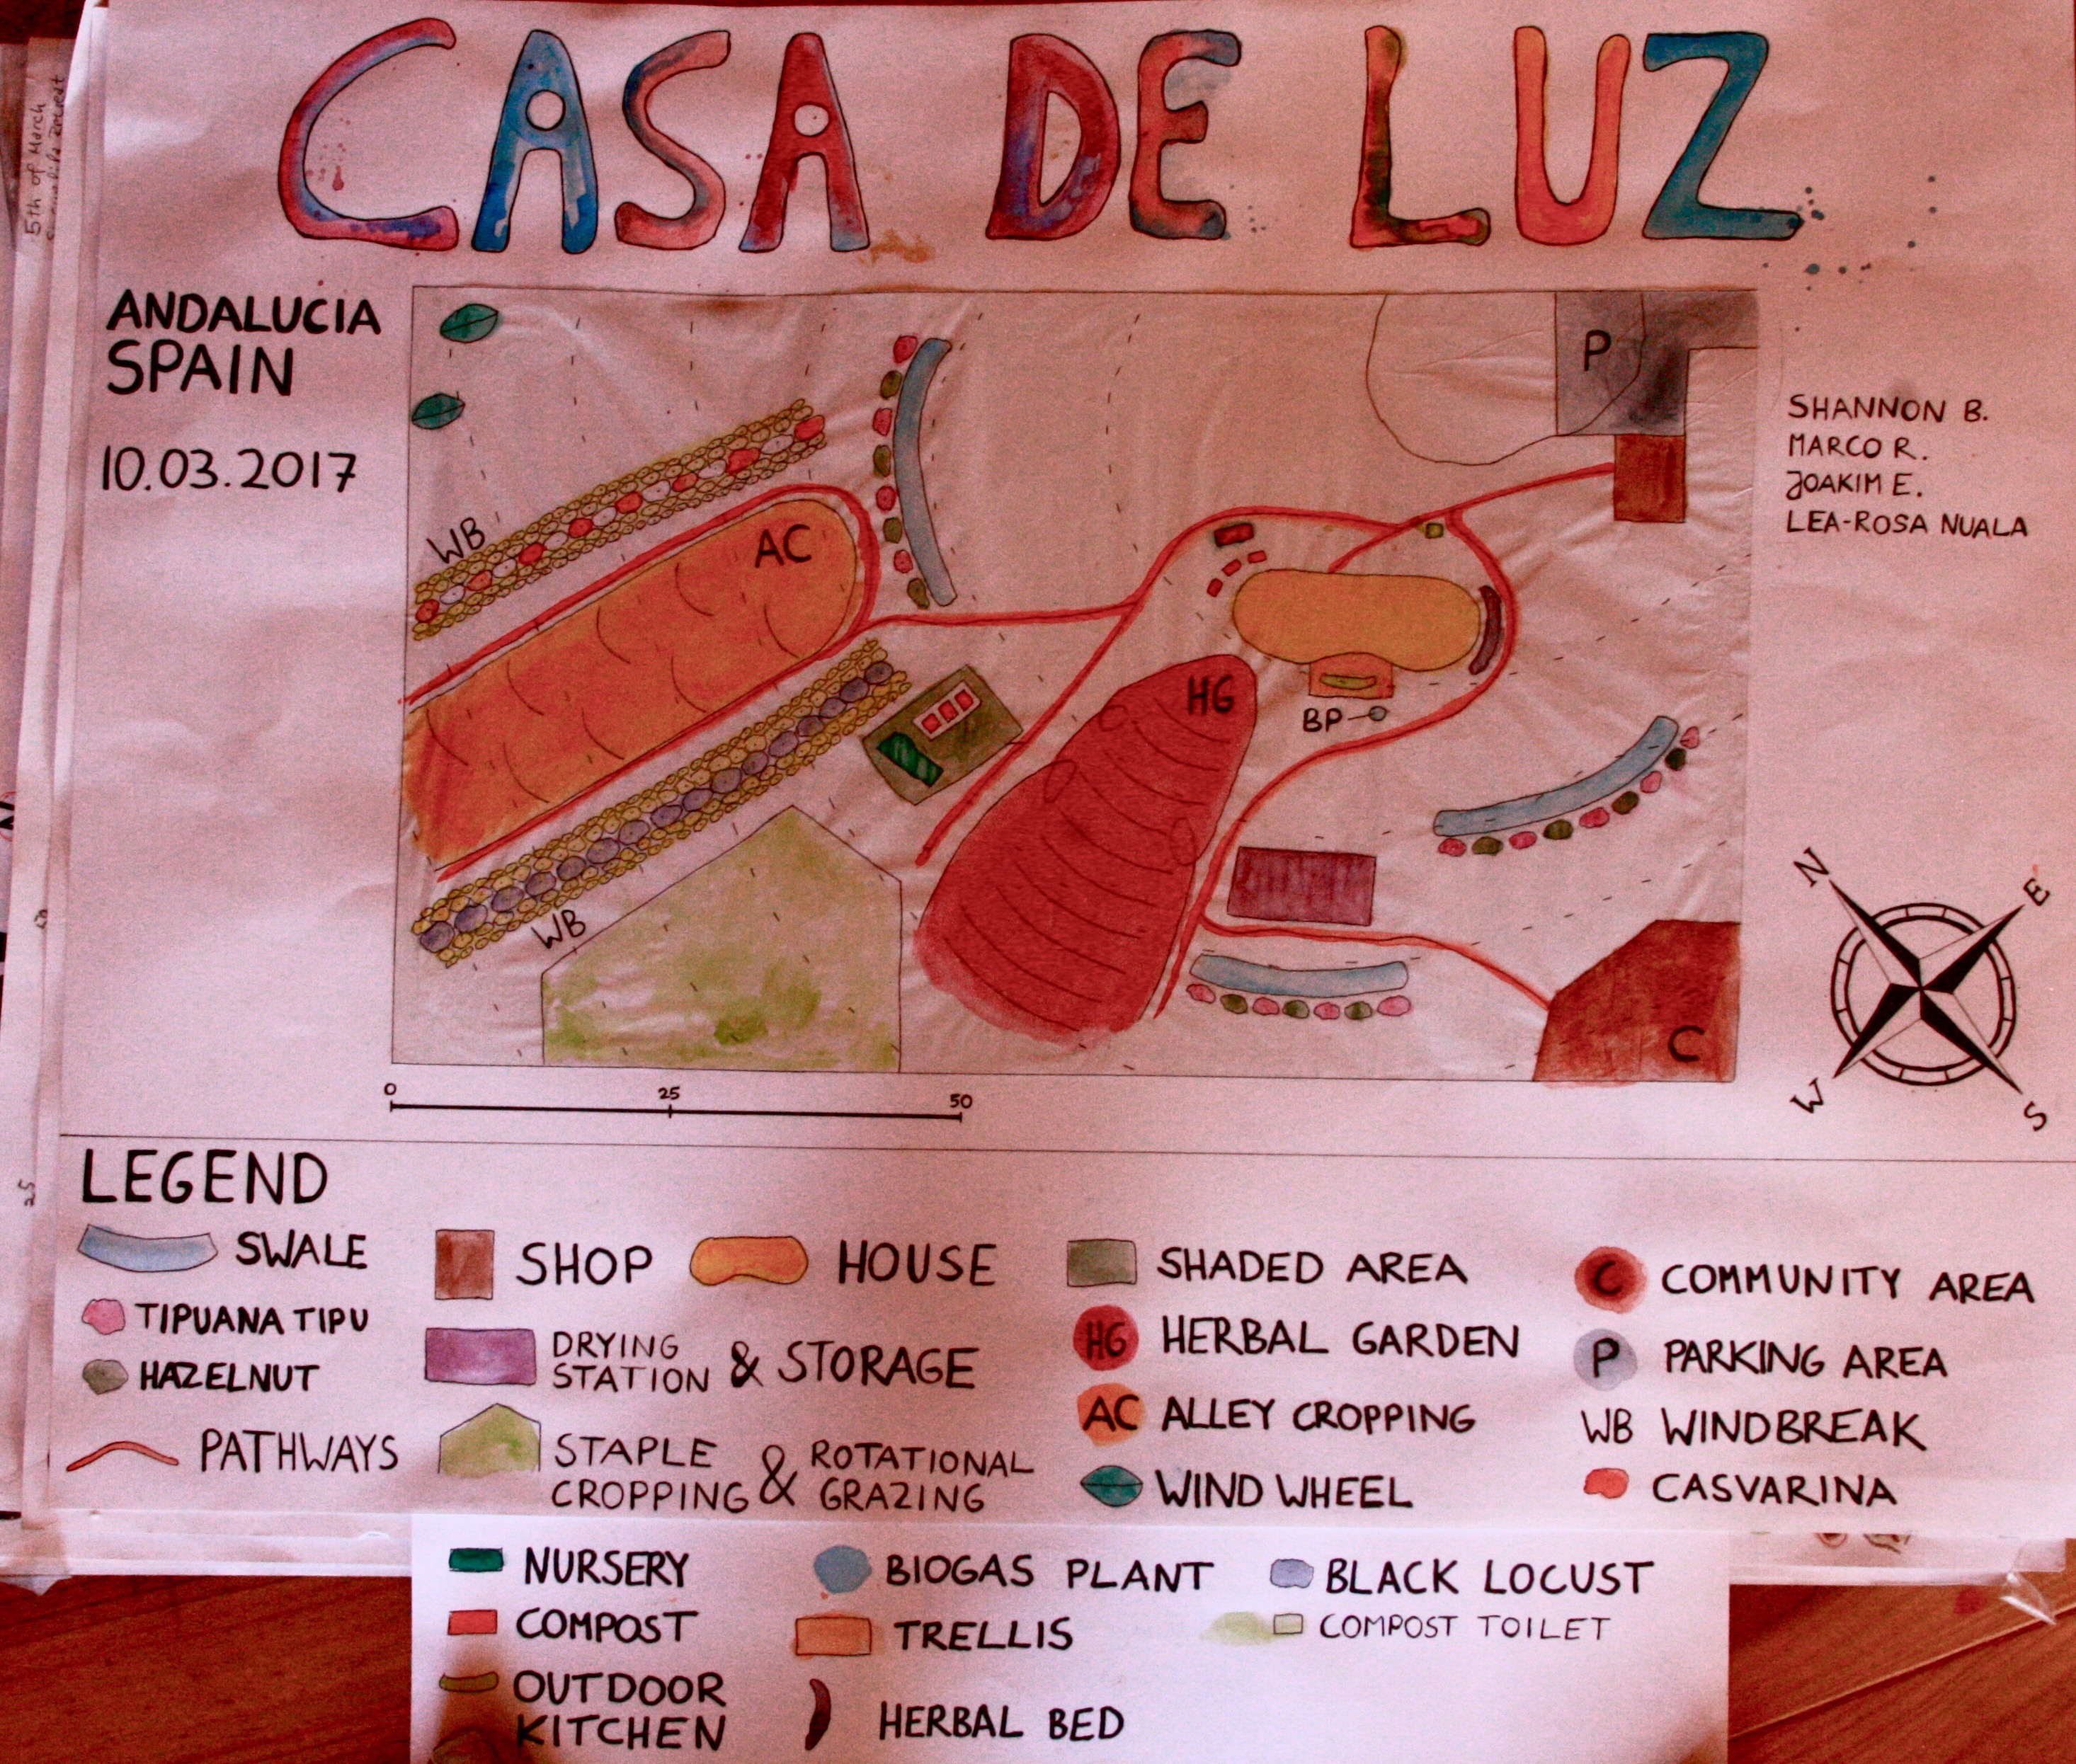 CASA DE LUZ
ANDALUCIA
SPAIN
10.03.2017
SHANNON B.
MARCO R.
JOAKIM E.
LEA-ROSA NUALA
5th of March
P
WB
AC
HG
BP
WB
C
N
E
W
S
0 25 50
25
LEGEND
SWALE
TIPUANA TIPU
HAZELNUT
PATHWAYS
SHOP
HOUSE
DRYING
STATION & STORAGE
STAPLE
CROPPING & ROTATIONAL
GRAZING
SHADED AREA
HG HERBAL GARDEN
AC ALLEY CROPPING
WIND WHEEL
C COMMUNITY AREA
P PARKING AREA
WB WINDBREAK
CASVARINA
NURSERY
COMPOST
OUTDOOR
KITCHEN
BIOGAS PLANT
TRELLIS
HERBAL BED
BLACK LOCUST
COMPOST TOILET